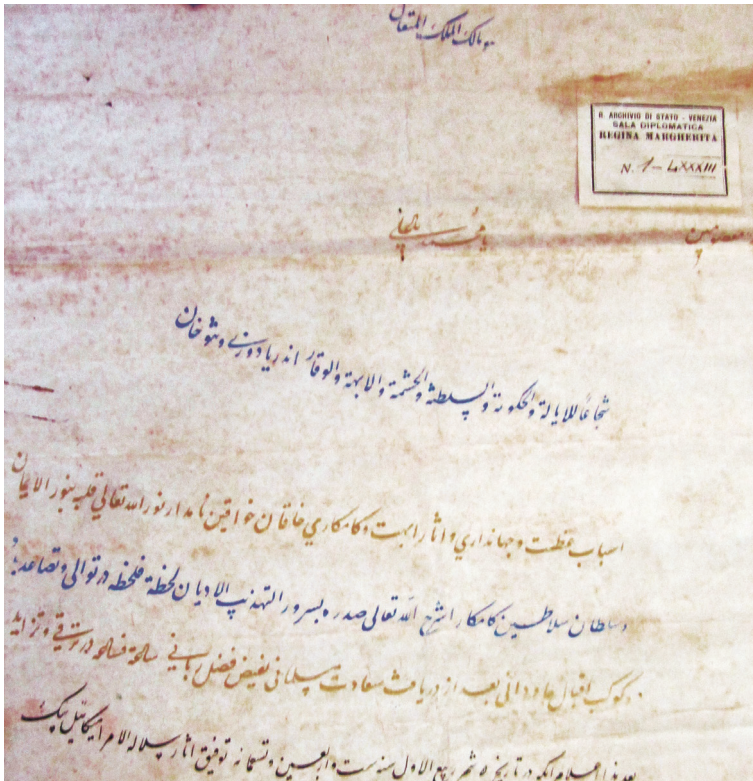 مالك الملك المتعال
R. ARCHIVIO DI STATO - VENEZIA
SALA DIPLOMATICA
REGINA MARGHERITA
N. 1-LXXXIII
شجاعا للايالة والحكومة والسلطنة والحشمة والابهة والوقار اندريا دوزي وخان
اسباب عظمت وجهانداري واثار ابهت وكامكاري خاقان خواقين نامدار نور الله تعالي قلبه بنور الايمان
وسلطان سلاطين كامكار اشرح الله تعالى صدره بسرور التهذيب الاديان لحظة فلحظة در توالى وتصاعد
كوكب اقبال جاودانى بعد از دريافت سعادت بفيض فضل رباني ساعة فساعة در ترقي وتزايد
بعد در تاريخ شهر ربيع الاول سنه ست واربعين وتسعمائه توفيق اثار سلاله الامرا ميكائيل بيك